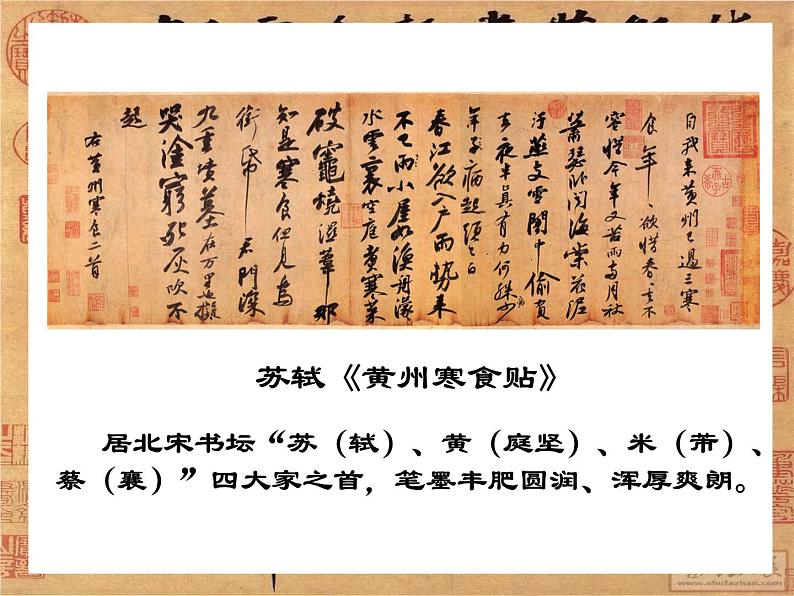 自我來黃州已過三寒
食年〻欲惜春〻去不
容惜今年又苦雨兩月秋
蕭瑟卧聞海棠花泥
汙燕支雪闇中偷負
去夜半真有力何殊少
年子病起須已白
春江欲入户雨勢來
不已雨小屋如漁舟濛〻
水雲裏空庖煮寒菜
破竈燒濕葦那
知是寒食但見烏
銜帋君門深
九重墳墓在万里也擬
哭塗窮死灰吹不
起
右黃州寒食二首
苏轼《黄州寒食贴》
居北宋书坛“苏（轼）、黄（庭坚）、米（芾）、
蔡（襄）”四大家之首，笔墨丰肥圆润、浑厚爽朗。
www.shufazhan.com